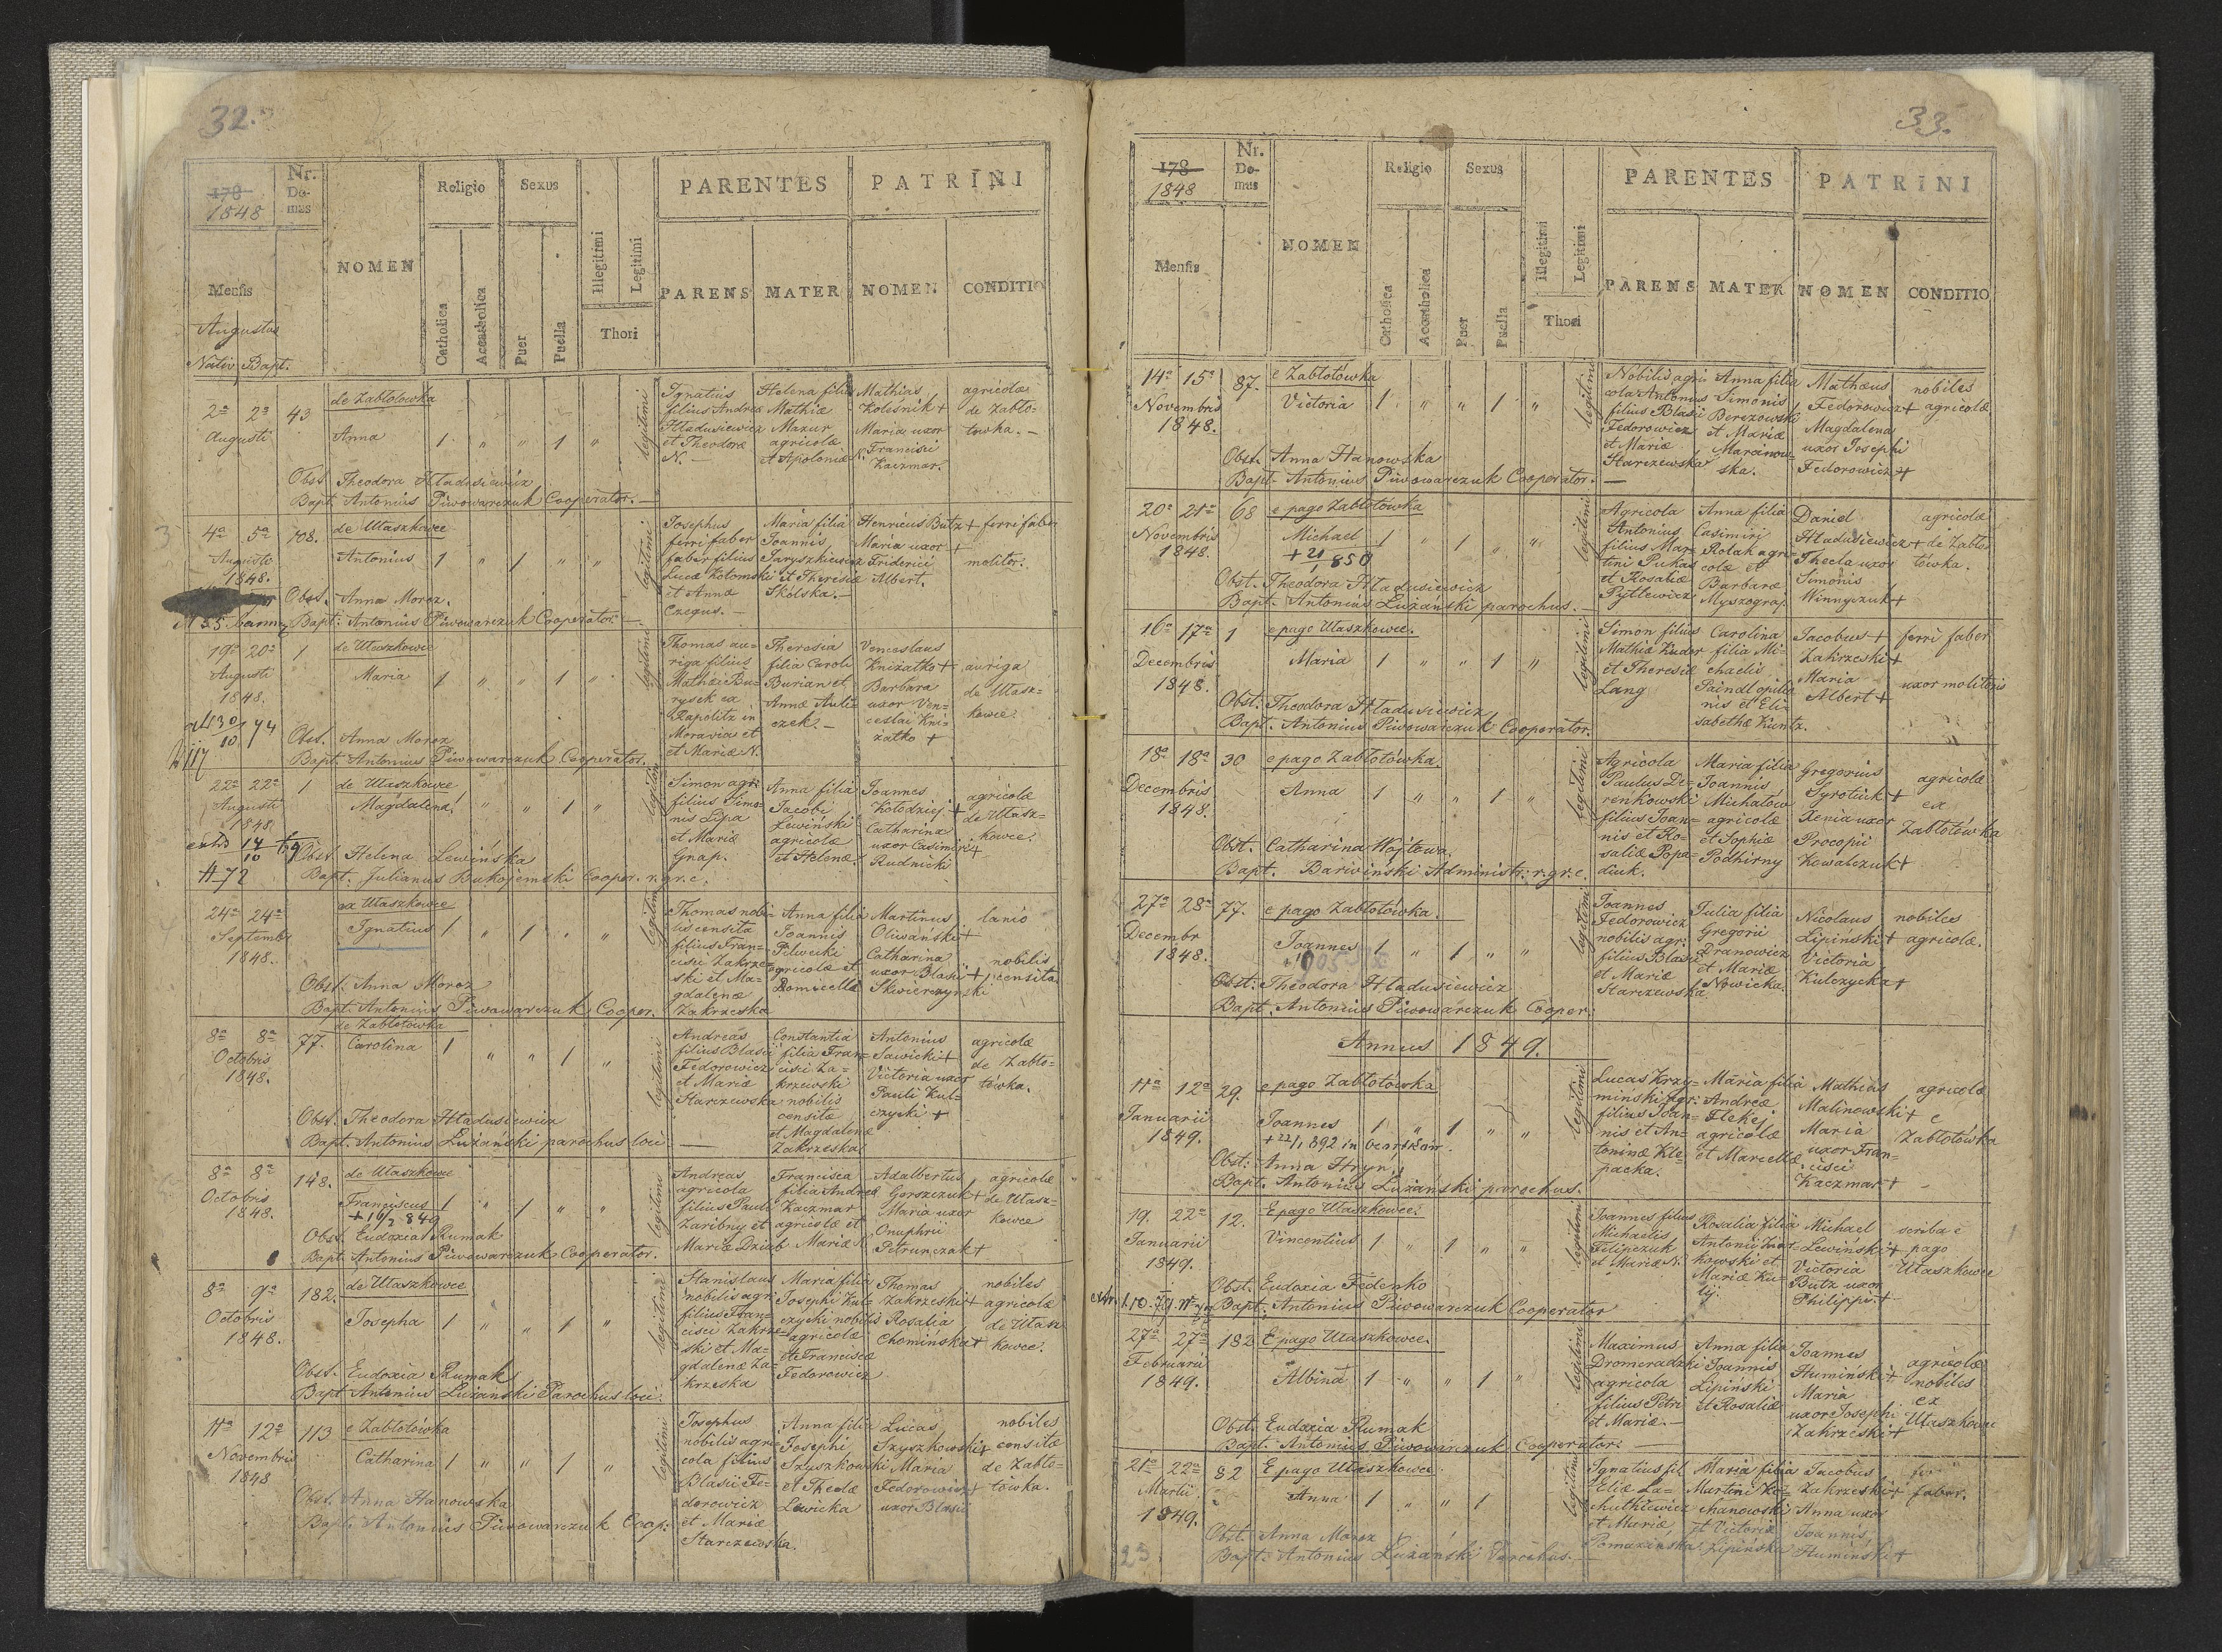 32.
178
1848
Nr. Do- mus
NOMEN
Religio
Catholica
Accatholica
Sexus
Puer
Puella
Illegitimi
Legitimi
Thori
PARENTES
PARENS
MATER
PATRINI
NOMEN
CONDITIO
Mensis
Augustus
Nativ. Bapt.
2a 2a 43
Augusti
de Zabłotowka
Anna 1 " " 1 "
legitimi
Ignatius
filius Andreæ
Hładusiewicz
et Theodoræ
N. —
Helena filia
Mathiæ
Mazur
agricolæ
et Apoloniæ N.
Mathias
Kolesnik +
Maria uxor
Francisci
Kaczmar.
agricolæ
de Zabło-
towka. —
Obst. Theodora Hładusiewicz
Bapt. Antonius Piwowarczuk Cooperator. —
4a 5a 108.
Augusti
1848.
de Ułaszkowce
Antonius 1 " 1 " "
legitimi
Josephus
ferri faber
faber filius
Lucæ Kotomski
et Annæ
Czegus. —
Maria filia
Joannis
Jaryszkiewicz
et Theresiæ
Skólska. —
Henricus Butz +
Maria uxor +
Friderici
Albert.
ferri faber
molitor.
Obst. Anna Moroz.
Bapt. Antonius Piwowarczuk Cooperator. —
19a 20a 1
Augusti
1848.
de Ułaszkowce
Maria 1 " " 1 "
legitimi
Thomas au-
riga filius
Mathæi Bu-
rysek ex
Rapolitz in
Moravia et
et Mariæ N.
Theresia
filia Caroli
Burian et
Annæ Auli-
czek. —
Venceslaus
Kniżatko +
Barbara
uxor Ven-
ceslai Kni-
żatko +
auriga
de Ułasz-
kowce.
Obst. Anna Moroz
Bapt. Antonius Piwowarczuk Cooperator.
22a 22a 1
Augusti
1848
de Ułaszkowce
Magdalena. " " 1 "
legitimi
Simon agri
filius Simo-
nis Lipa
et Mariæ
Gnap.
Anna filia
Jacobi
Lewiński
agricolæ
et Helenæ
Joannes
Kołodziej +
Catharina
uxor Casimiri +
Rudnicki
agricolæ
de Ułasz-
kowce.
Obst. Helena Lewińska
Bapt. Julianus Bukojemski Cooper. r. gr. c.
24a 24a
Septembr
1848.
ex Ułaszkowce
Ignatius 1 " 1 " "
legitimi
Thomas nobi-
lis censita
filius Fran-
cisci Zakrze-
ski et Ma-
gdalenæ
Zakrzeska
Anna filia
Joannis
agricolæ et
Domicellæ
Martinus
Oliwański +
Catharina
uxor Blasii +
Skwierczynski
lanio
nobilis
censita
Obst. Anna Moroz
Bapt. Antonius Piwowarczuk Cooper.
8a 8a 77.
Octobris
1848.
de Zabłotówka
Carolina 1 " " 1 "
legitimi
Andreas
filius Blasii
Fedorowicz
et Mariæ
Starczewska
Constantia
filia Fran-
cisci Za-
krzewski
nobilis
censitæ
et Magdalenæ
Zakrzeska
Antonius
Sawicki +
Victoria uxor
Pauli Kul-
czycki +
agricolæ
de Zabło-
tówka.
Obst. Theodora Hładusiewicz
Bapt. Antonius Luzanski parochus loci. —
8a 8a 148.
Octobris
1848.
de Ułaszkowce
Franciscus 1 " 1 " "
legitimi
Andreas
agricola
filius Pauli
Zaribny et
Mariæ Dziub
Francisca
filia Andreæ
Kaczmar
agricolæ et
Mariæ N.
Adalbertus
Gorszczuk +
Maria uxor
Onuphrii
Petrunczak +
agricolæ
de Ułasz-
kowce
Obst. Eudoxia Rumak
Bapt. Antonius Piwowarczuk Cooperator.
8a 9a 182.
Octobris
1848.
de Ułaszkowce
Josepha 1 " " 1 "
legitimi
Stanislaus
nobilis agri
filius Fran-
cisci Zakrze-
ski et Ma-
gdalenæ Za-
krzeska
Maria filia
Josephi Kul-
czycki nobilis
agricolæ
et Franciscæ
Fedorowicz
Thomas
Zakrzeski +
Rosalia
Chomińska +
nobiles
agricolæ
de Ułasz
kowce.
Obst. Eudoxia Rumak
Bapt. Antonius Luzanski Parochus loci.
11a 12a 113
Novembris
1848
e Zabłotówka
Catharina 1 " " 1 "
legitimi
Josephus
nobilis agri-
cola filius
Blasii Fe-
dorowicz
et Mariæ
Starczewska.
Anna filia
Josephi
Szyszkowski
et Theclæ
Lewicka
Lucas
Szyszkowski +
Maria
Fedorowicz +
uxor Blasii
nobiles
censitæ
de Zabło-
tówka.
Obst. Anna Hanowska
Bapt. Antonius Piwowarczuk Coop:
33.
178
1848
Nr. Do- mus
Mensis
NOMEN
Religio
Catholica
Accatholica
Sexus
Puer
Puella
Illegitimi
Legitimi
Thori
PARENTES
PARENS
MATER
PATRINI
NOMEN
CONDITIO
14a 15a 87.
Novembris
1848.
e Zabłotówka
Victoria 1 " " 1 "
legitimi
Nobilis agri
cola Antonius
filius Blasii
Fedorowicz
et Mariæ
Starczewska
Anna filia
Simonis
Berezowski
et Mariæ
Marcinow-
ska.
Mathæus
Fedorowicz +
Magdalena
uxor Josephi
Fedorowicz +
nobiles
agricolæ
Obst. Anna Hanowska
Bapt. Antonius Piwowarczuk Cooperator. —
20a 21a 68
Novembris
1848.
e pago Zabłotówka
Michael 1 " 1 " "
legitimi
Agricola
Antonius
filius Mar-
tini Pukas
et Rosaliæ
Pytlewicz
Anna filia
Casimiri
Rolak agri-
colæ et
Barbaræ
Myszograj.
Daniel
Hładusiewicz +
Thecla uxor
Simonis
Winnyczuk +
agricolæ
de Zabło
tówka.
Obst. Theodora Hładusiewicz
Bapt. Antonius Luzański parochus. —
16a 17a 1
Decembris
1848.
e pago Ułaszkowce.
Maria 1 " " 1 "
legitimi
Simon filius
Mathiæ Kuder
et Theresiæ
Lang
Carolina
filia Mi-
chaelis
Paindl opilio
nis et Eli-
sabethæ Kuntz.
Jacobus +
Zakrzeski +
Maria
Albert +
ferri faber
uxor molitoris
Obst. Theodora Hładusiewicz
Bapt. Antonius Piwowarczuk Cooperator.
18a 18a 30
Decembris
1848.
e pago Zabłotówka.
Anna 1 " " 1 "
legitimi
Agricola
Paulus De-
renkowski
filius Joan-
nis et Ro-
saliæ Popa-
diuk.
Maria filia
Joannis
Michałow
agricolæ
et Sophiæ
Podhirny
Gregorius
Syrotiuk +
Xenia uxor
Procopii
Kowalczuk +
agricolæ
ex
Zabłotówka
Obst. Catharina Wojtowa
Bapt. Barwiński Administr. r. gr. c.
27a 28a 77.
Decembr
1848.
e pago Zabłotówka.
Joannes 1 " 1 " "
legitimi
Joannes
Fedorowicz
nobilis agri:
filius Blasii
et Mariæ
Starczewska
Julia filia
Gregorii
Dranowicz
et Mariæ
Nowicka.
Nicolaus
Lipiński +
Victoria
Kulczycka +
nobiles
agricolæ.
Obst: Theodora Hładusiewicz
Bapt. Antonius Piwowarczuk Cooper:
Annus 1849.
11a 12a 29.
Januarii
1849.
e pago Zabłotówka
Joannes 1 " 1 " "
legitimi
Lucas Krzy-
minski agr:
filius Joan-
nis et An-
toninæ Kle-
packa.
Maria filia
Andreæ
Flekej
agricolæ
et Marcellæ
Mathias
Malinowski +
Maria
uxor Fran-
cisci
Kaczmar +
agricolæ
e
Zabłotówka
Obst: Anna Hryn.
Bapt. Antonius Luzański parochus.
19. 22a 12.
Januarii
1849.
E pago Ułaszkowce.
Vincentius 1 " 1 " "
legitimi
Joannes filius
Michaelis
Filipczuk
et Mariæ N.
Rosalia filia
Antonii Kwat-
kowski et
Mariæ Ku-
lij.
Michael
Lewiński +
Victoria
Butz uxor
Philippi +
scriba e
pago
Ułaszkowce
Obst. Eudoxia Fedenko
Bapt. Antonius Piwowarczuk Cooperator
27a 27a 182
Februarii
1849.
E pago Ułaszkowce.
Albina 1 " " 1 "
legitimi
Maximus
Dromeradzki
agricola
filius Petri
et Mariæ. —
Anna filia
Joannis
Lipiński
et Rosaliæ
Joannes
Humiński +
Maria
uxor Josephi
Zakrzeski +
agricolæ
nobiles
ex
Ułaszkowce
Obst. Eudoxia Rumak
Bapt. Antonius Piwowarczuk Cooperator. —
21a 22a 82
Martii
1849.
E pago Ułaszkowce
Anna 1 " " 1
legitimi
Ignatius fil
Eliæ La-
chutkiewicz
et Mariæ
Pomazanska
Maria filia
Martini Ko-
chanowski
et Victoriæ
Lipińska
Jacobus
Zakrzeski +
Anna uxor
Joannis
Humiński +
faber.
Obst. Anna Moroz
Bapt. Antonius Luzański Parochus. —